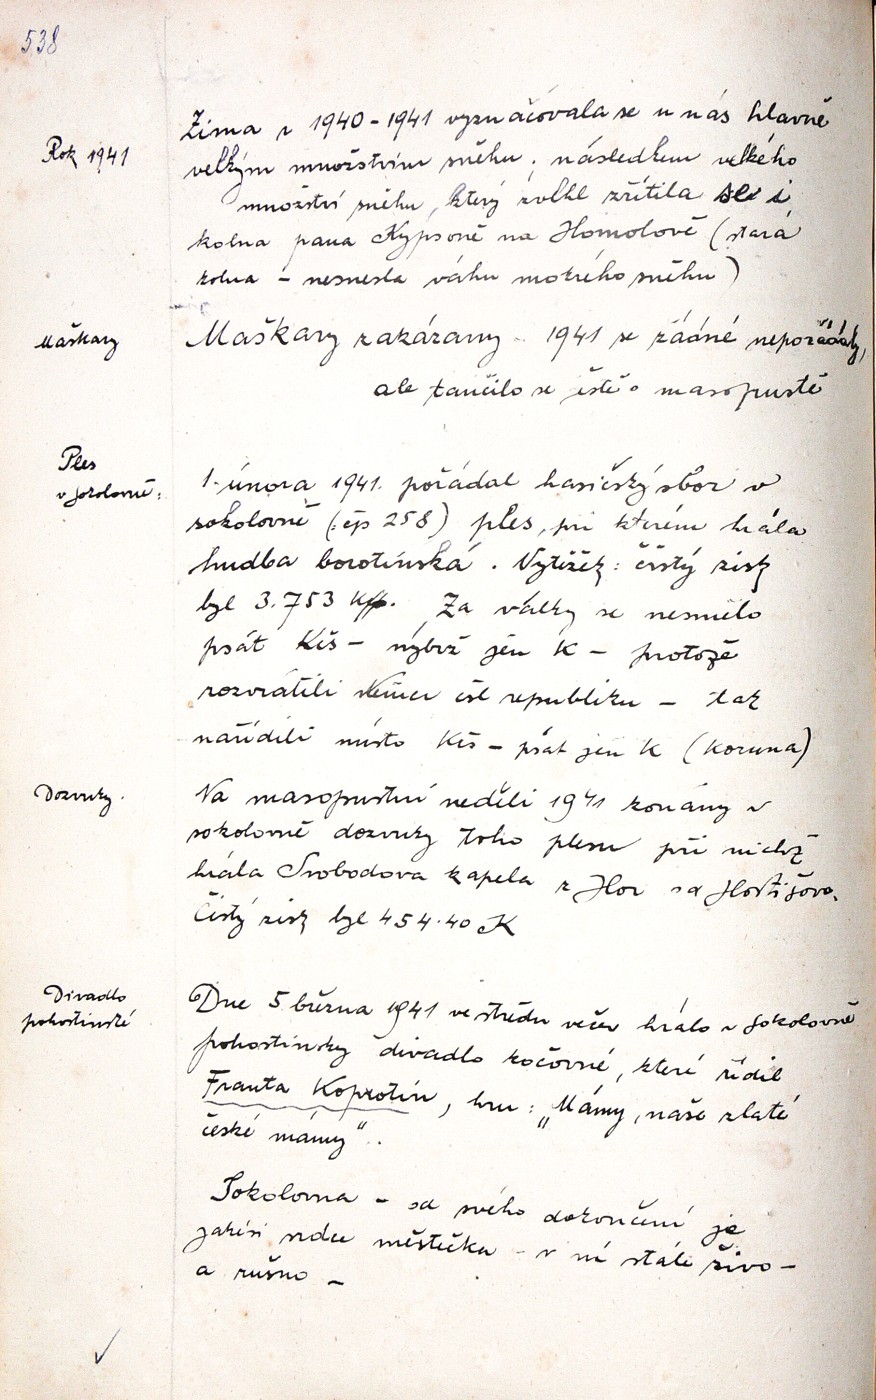 538
Rok 1941
Zima r 1940-1941 vyznačovala se u nás hlavně
velkým množstvím sněhu; následkem velkého
množství sněhu, který zvlhl zřítila se i
kolna pana na Homolově (stará
kolna - nesnesla váhu mokrého sněhu)
Maškary
Maškary zakázany - 1941 se žádné nepořádaly,
ale tančilo se ještě o masopustě
Ples
v sokolovně:
1. února 1941. pořádal hasičský sbor v
sokolovně (: čp 258) ples, při kterém hrála
hudba borotínská. Výtěžek: čistý zisk
byl 3.753 K. Za války se nesmělo
psát Kčs - nýbrž jen K - protože
rozvrátili Němci čsl republiku - tak
nařídili místo Kčs - psát jen K (koruna)
Dozvuky.
Na masopustní neděli 1941 konány v
sokolovně dozvuky toho plesu při nichž
hrála Svobodova kapela z Hor od Hoštišova.
Čistý zisk byl 454.40 K
Divadlo
pohostinské
Dne 5 března 1941 ve středu večer hrálo v sokolovně
pohostinsky divadlo kočovné, které řídil
Franta Koprotin, hru: „Mámy, naše zlaté
české mámy“.
Sokolovna - od svého dokončení je
jakési srdce městečka - v ní stále živo -
a rušno -